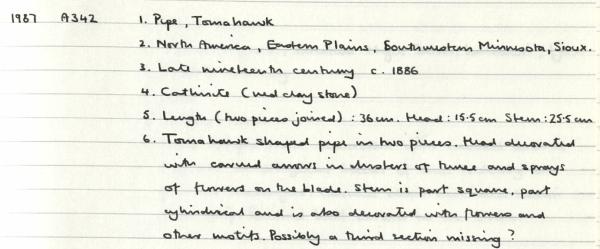 1987 A342 1. Pipe, Tomahawk
2. North America, Eastern Plains, Southwestern Minnesota, Sioux.
3. Late nineteenth century c. 1886
4. Cathinite (red clay stone)
5. Length (two pieces joined) : 36cm. Head : 15.5cm Stem : 25.5cm
6. Tomahawk shaped pipe in two pieces. Head decorated
with carved arrows in clusters of three and sprays
of flowers on the blade. Stem is part square, part
cylindrical and is also decorated with flowers and
other motifs. Possibly a third section missing?